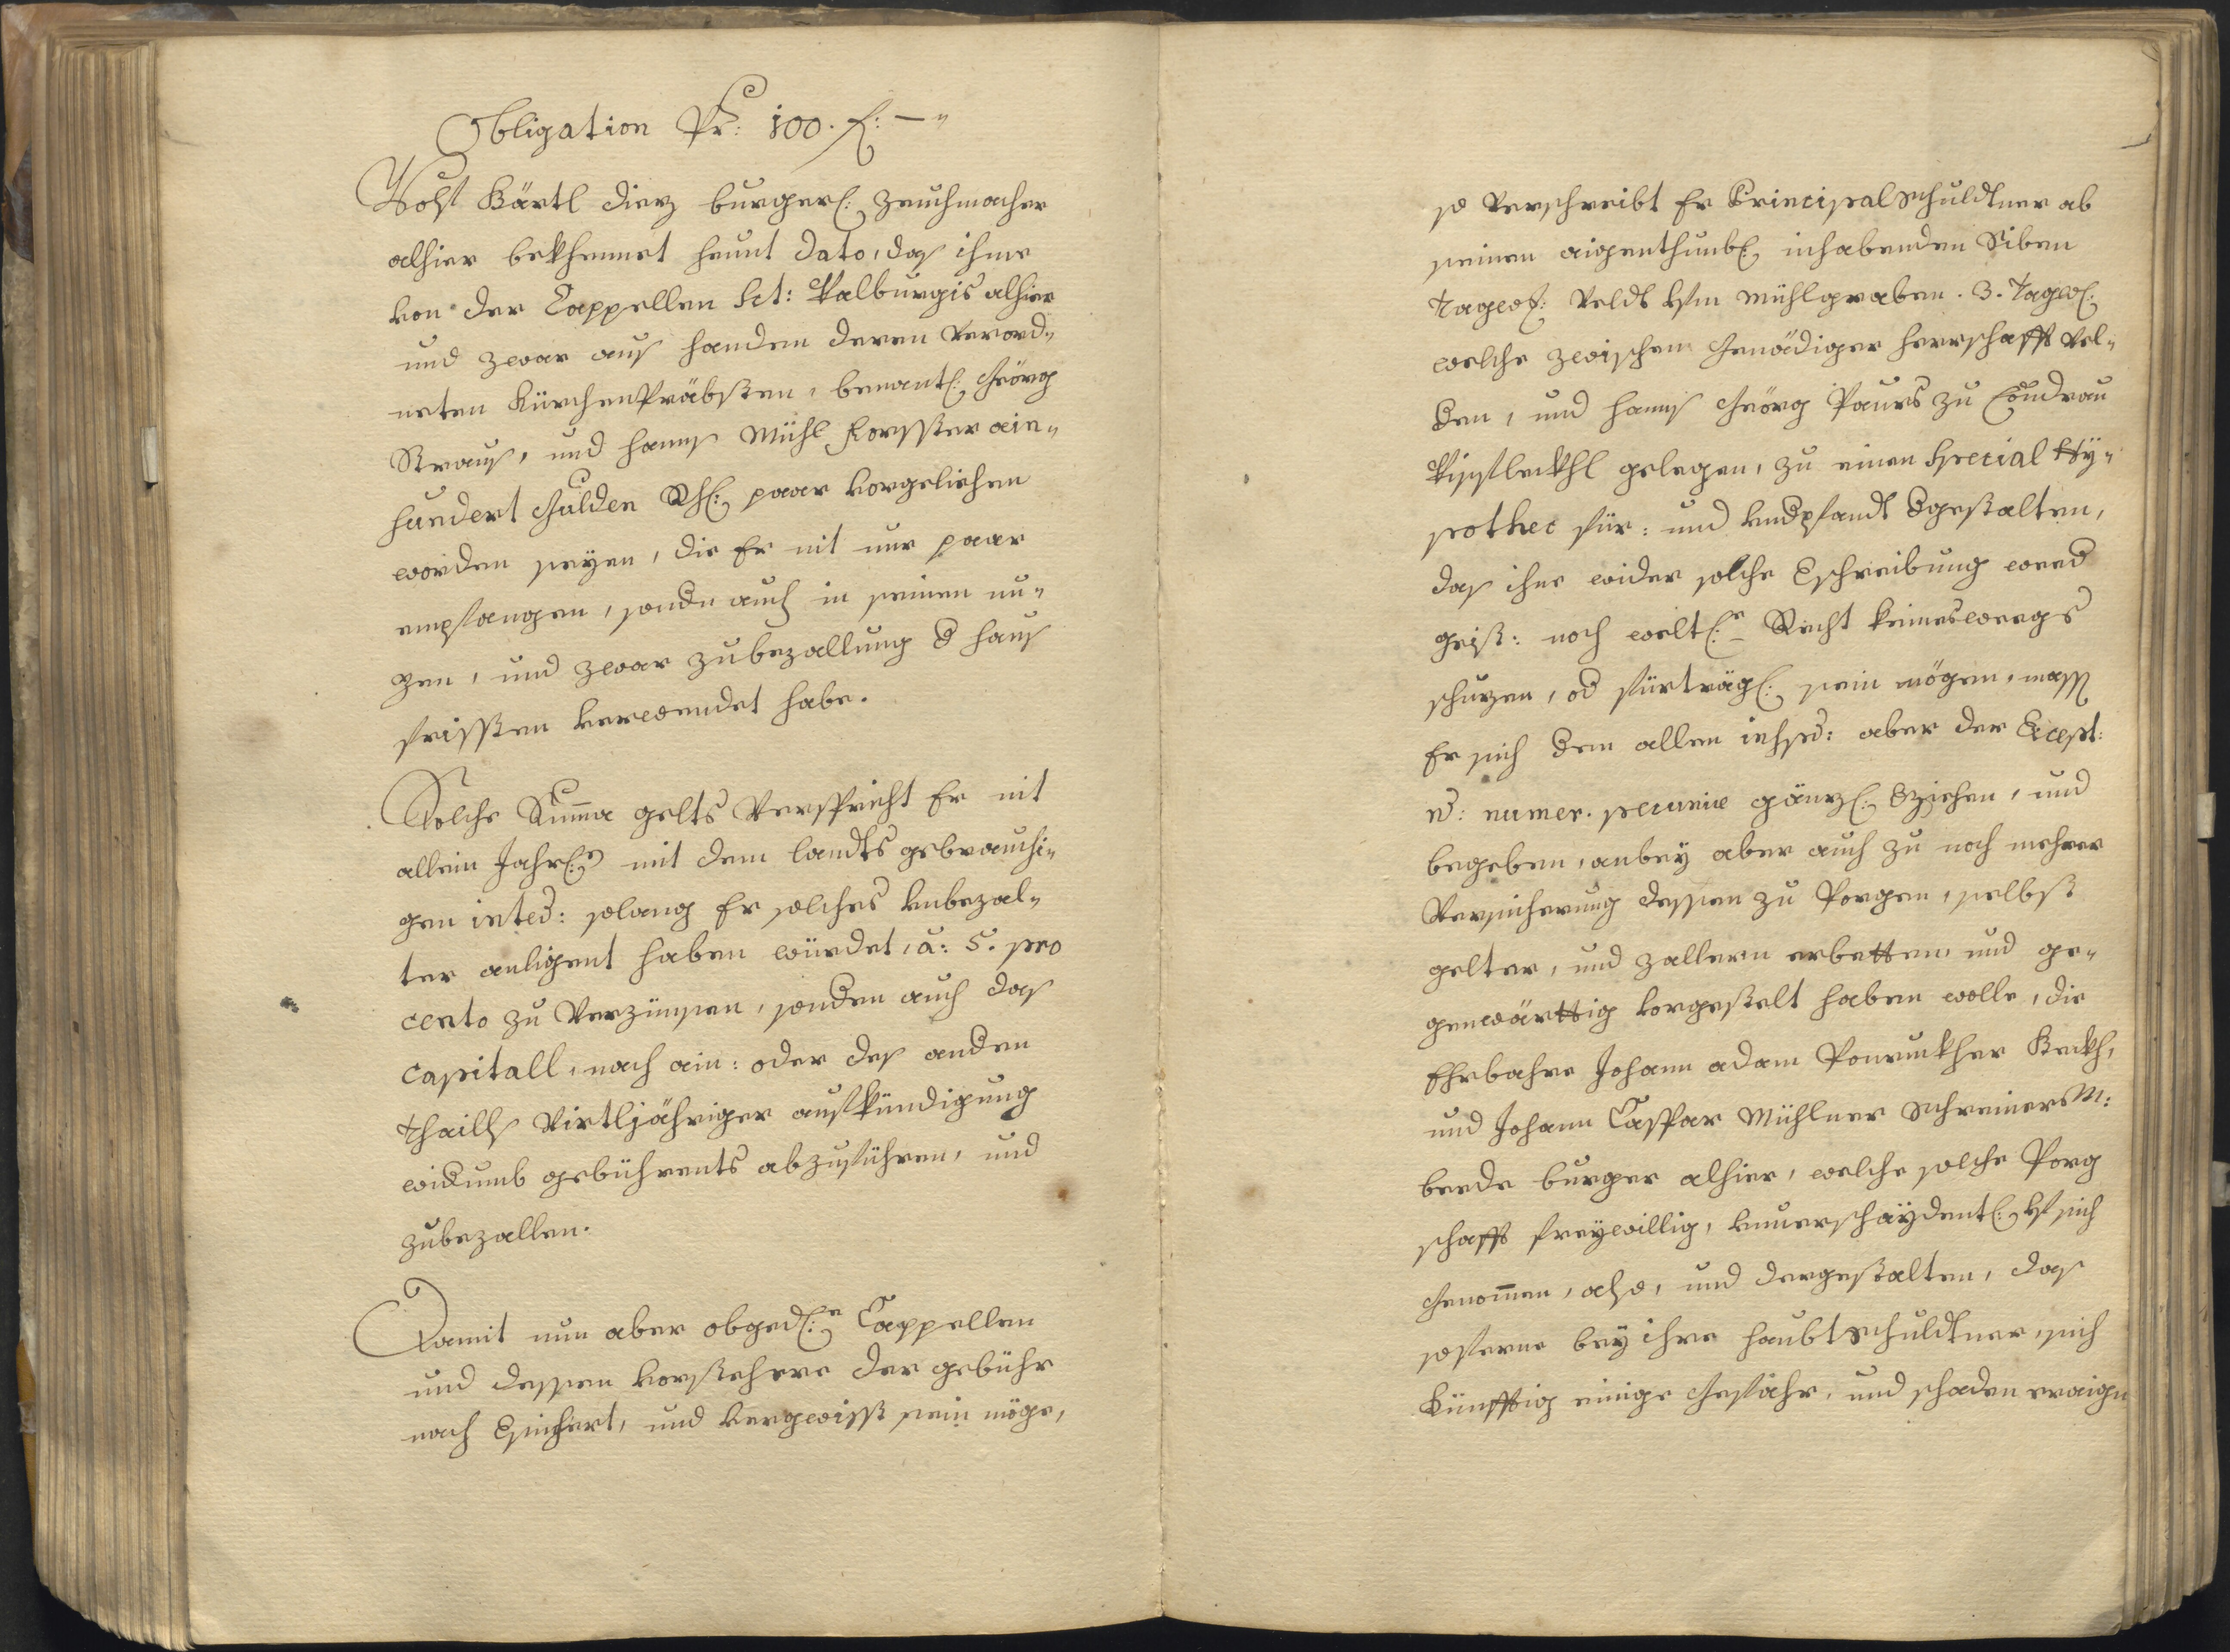 Obligation Pr: 100. f: —„
Wolf Bärtl Dierz burgerl: Zeuchmacher
alhier bekhennet heunt dato, das ihme
von der Cappellen Sct: Walburgis alhier
und zwar aus handen deren Verord„
neten Kürchenpräbsten, benantl: Geörg
Straus, und Hanns Mühl Forsster ain„
hundert Gulden Rh: paar vorgeliehen
worden seyen, die Er nit nur paar
empfangen, sondn auch in seinen nu„
zen, und zwar zubezallung d haus
fristen verwendet habe.
Solche Suma gelts Verspricht Er nit
allein Jahrl: mit dem landts gebreuchi„
gen inteus: solang Er solches unbezal„
ter anligent haben würdet, a: 5. pro
cento zu Verzünsen, sonden auch das
Capitall, nach ain: oder des anden
Thaills Virtljähriger aufkündigung
widumb gebührents abzuführen, und
zubezallen.
Damit nun aber obgedl:r Cappellen
und dessen Vorstehere der gebühr
nach Vsichert, und vergwisst sein möge,
so Verschreibt Er Principal Schuldtner ab
seinen aigenthumbl: inhabenden Siben
Tagw: Veldt bym Mühlgraben. 3. Tagw:
welche zwischen Genädiger Herrschafft Vel„
dern, und Hanns Geörg Paurs zu
gelegen, zu einen Special Hÿ„
pothec für: und Undpfandt dgestalten,
das ihne wider solche Vschreibung weed
geist: noch weltl:e Recht keinesweegs
schuzen, od fürträgl: sein mögen, mass
Er sich dem allen inhsd: aber der Except:
n: numer. pecuniæ gänzl: Vziehen, und
begeben, anbey aber auch zu noch mehrer
Versicherung dessen zu Porgen, selbst
gelter, und zallern erbetten und ge„
genwärttig vorgestelt haben wolle, die
Ehrbahre Johann Adam Ponrukher Beckh,
und Johann Caspar Mühlner Schreiners M:
beede burger alhier, welche solche Porg
schafft freywillig, unverschaydentl: yf sich
Genomen, also, und dergestalten, das
soferne bey ihre haubtschuldtner, sich
Künfftig einige Gefahr, und schaden eraign